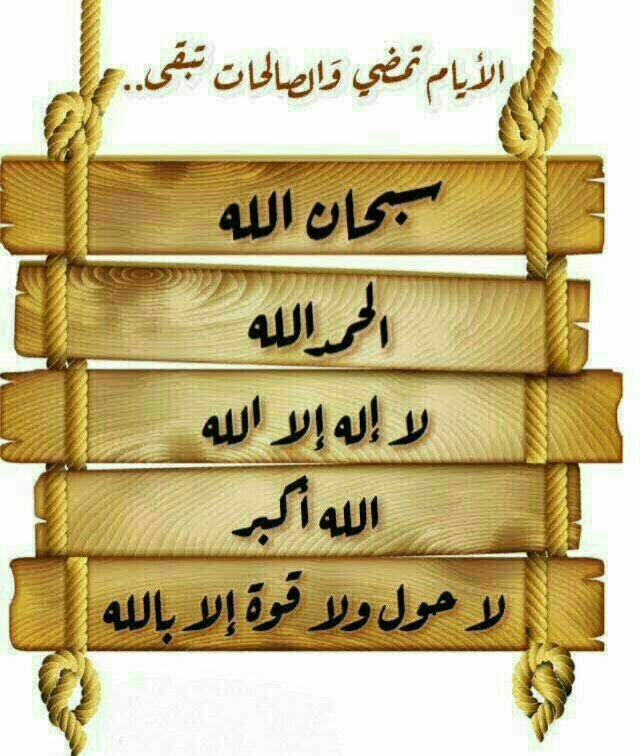 الأيام تمضي وَالصالحات تبقى..
سبحان الله
الحمدالله
لا إله إلا الله
الله أكبر
لا حول ولا قوة إلا بالله